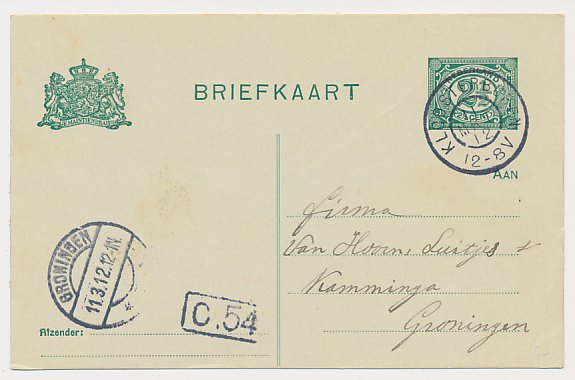 BRIEFKAART
NEDERLAND
2½ CENT
12-8V
AAN
Firma
Van Hoorn, Luitjes &
Kamminga
Groningen
GRONINGEN
11.3.12.12-1N.
C.54
Afzender: